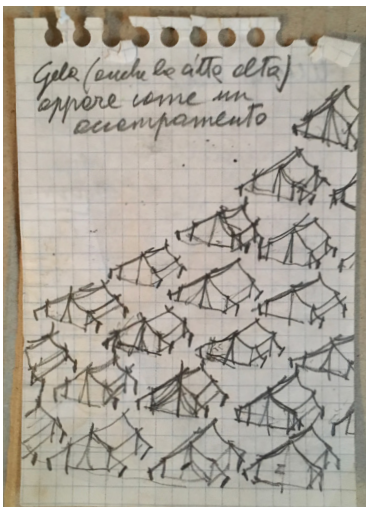 Gela (anche la città alta)
appare come un
accampamento